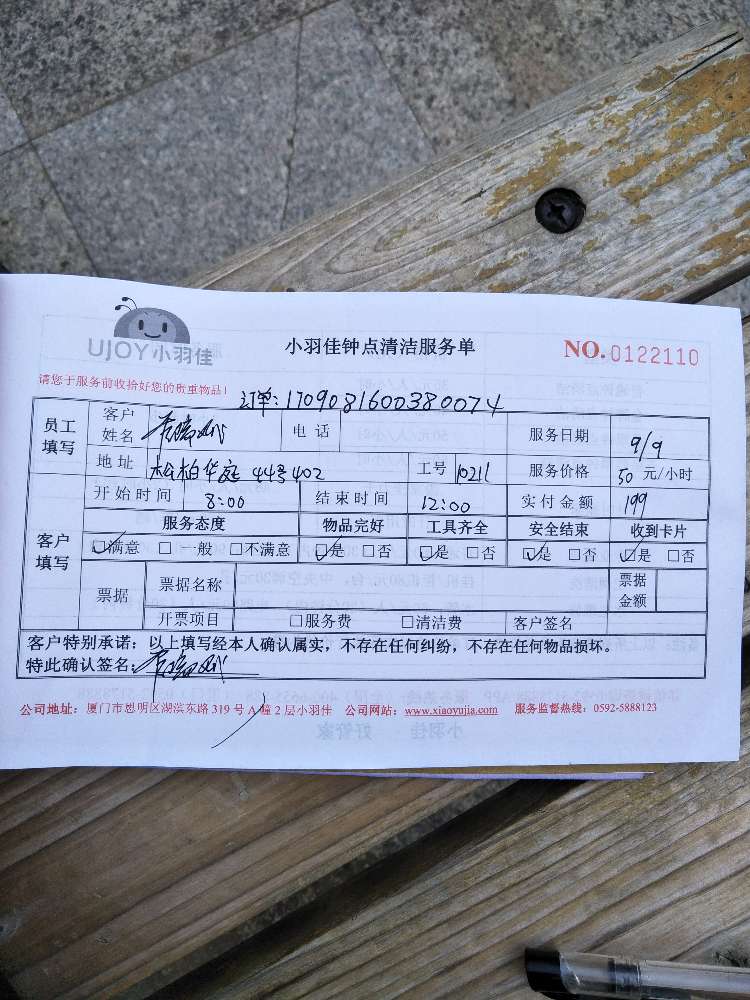 UJOY小羽佳
小羽佳钟点清洁服务单
NO.0122110
请您于服务前收拾好您的贵重物品!
订单:1709081600380074
员工填写 客户姓名 电话 服务日期 9/9
地址 松柏华庭 44号402 工号 10211 服务价格 50 元/小时
开始时间 8:00 结束时间 12:00 实付金额 199
客户填写 服务态度 物品完好 工具齐全 安全结束 收到卡片
☑满意 □一般 □不满意 ☑是 □否 ☑是 □否 ☑是 □否 ☑是 □否
票据 票据名称 票据金额
开票项目 □服务费 □清洁费 客户签名
客户特别承诺:以上填写经本人确认属实,不存在任何纠纷,不存在任何物品损坏。
特此确认签名:
公司地址:厦门市思明区湖滨东路 319 号 A 幢 2 层小羽佳 公司网站:www.xiaoyujia.com 服务监督热线:0592-5888123